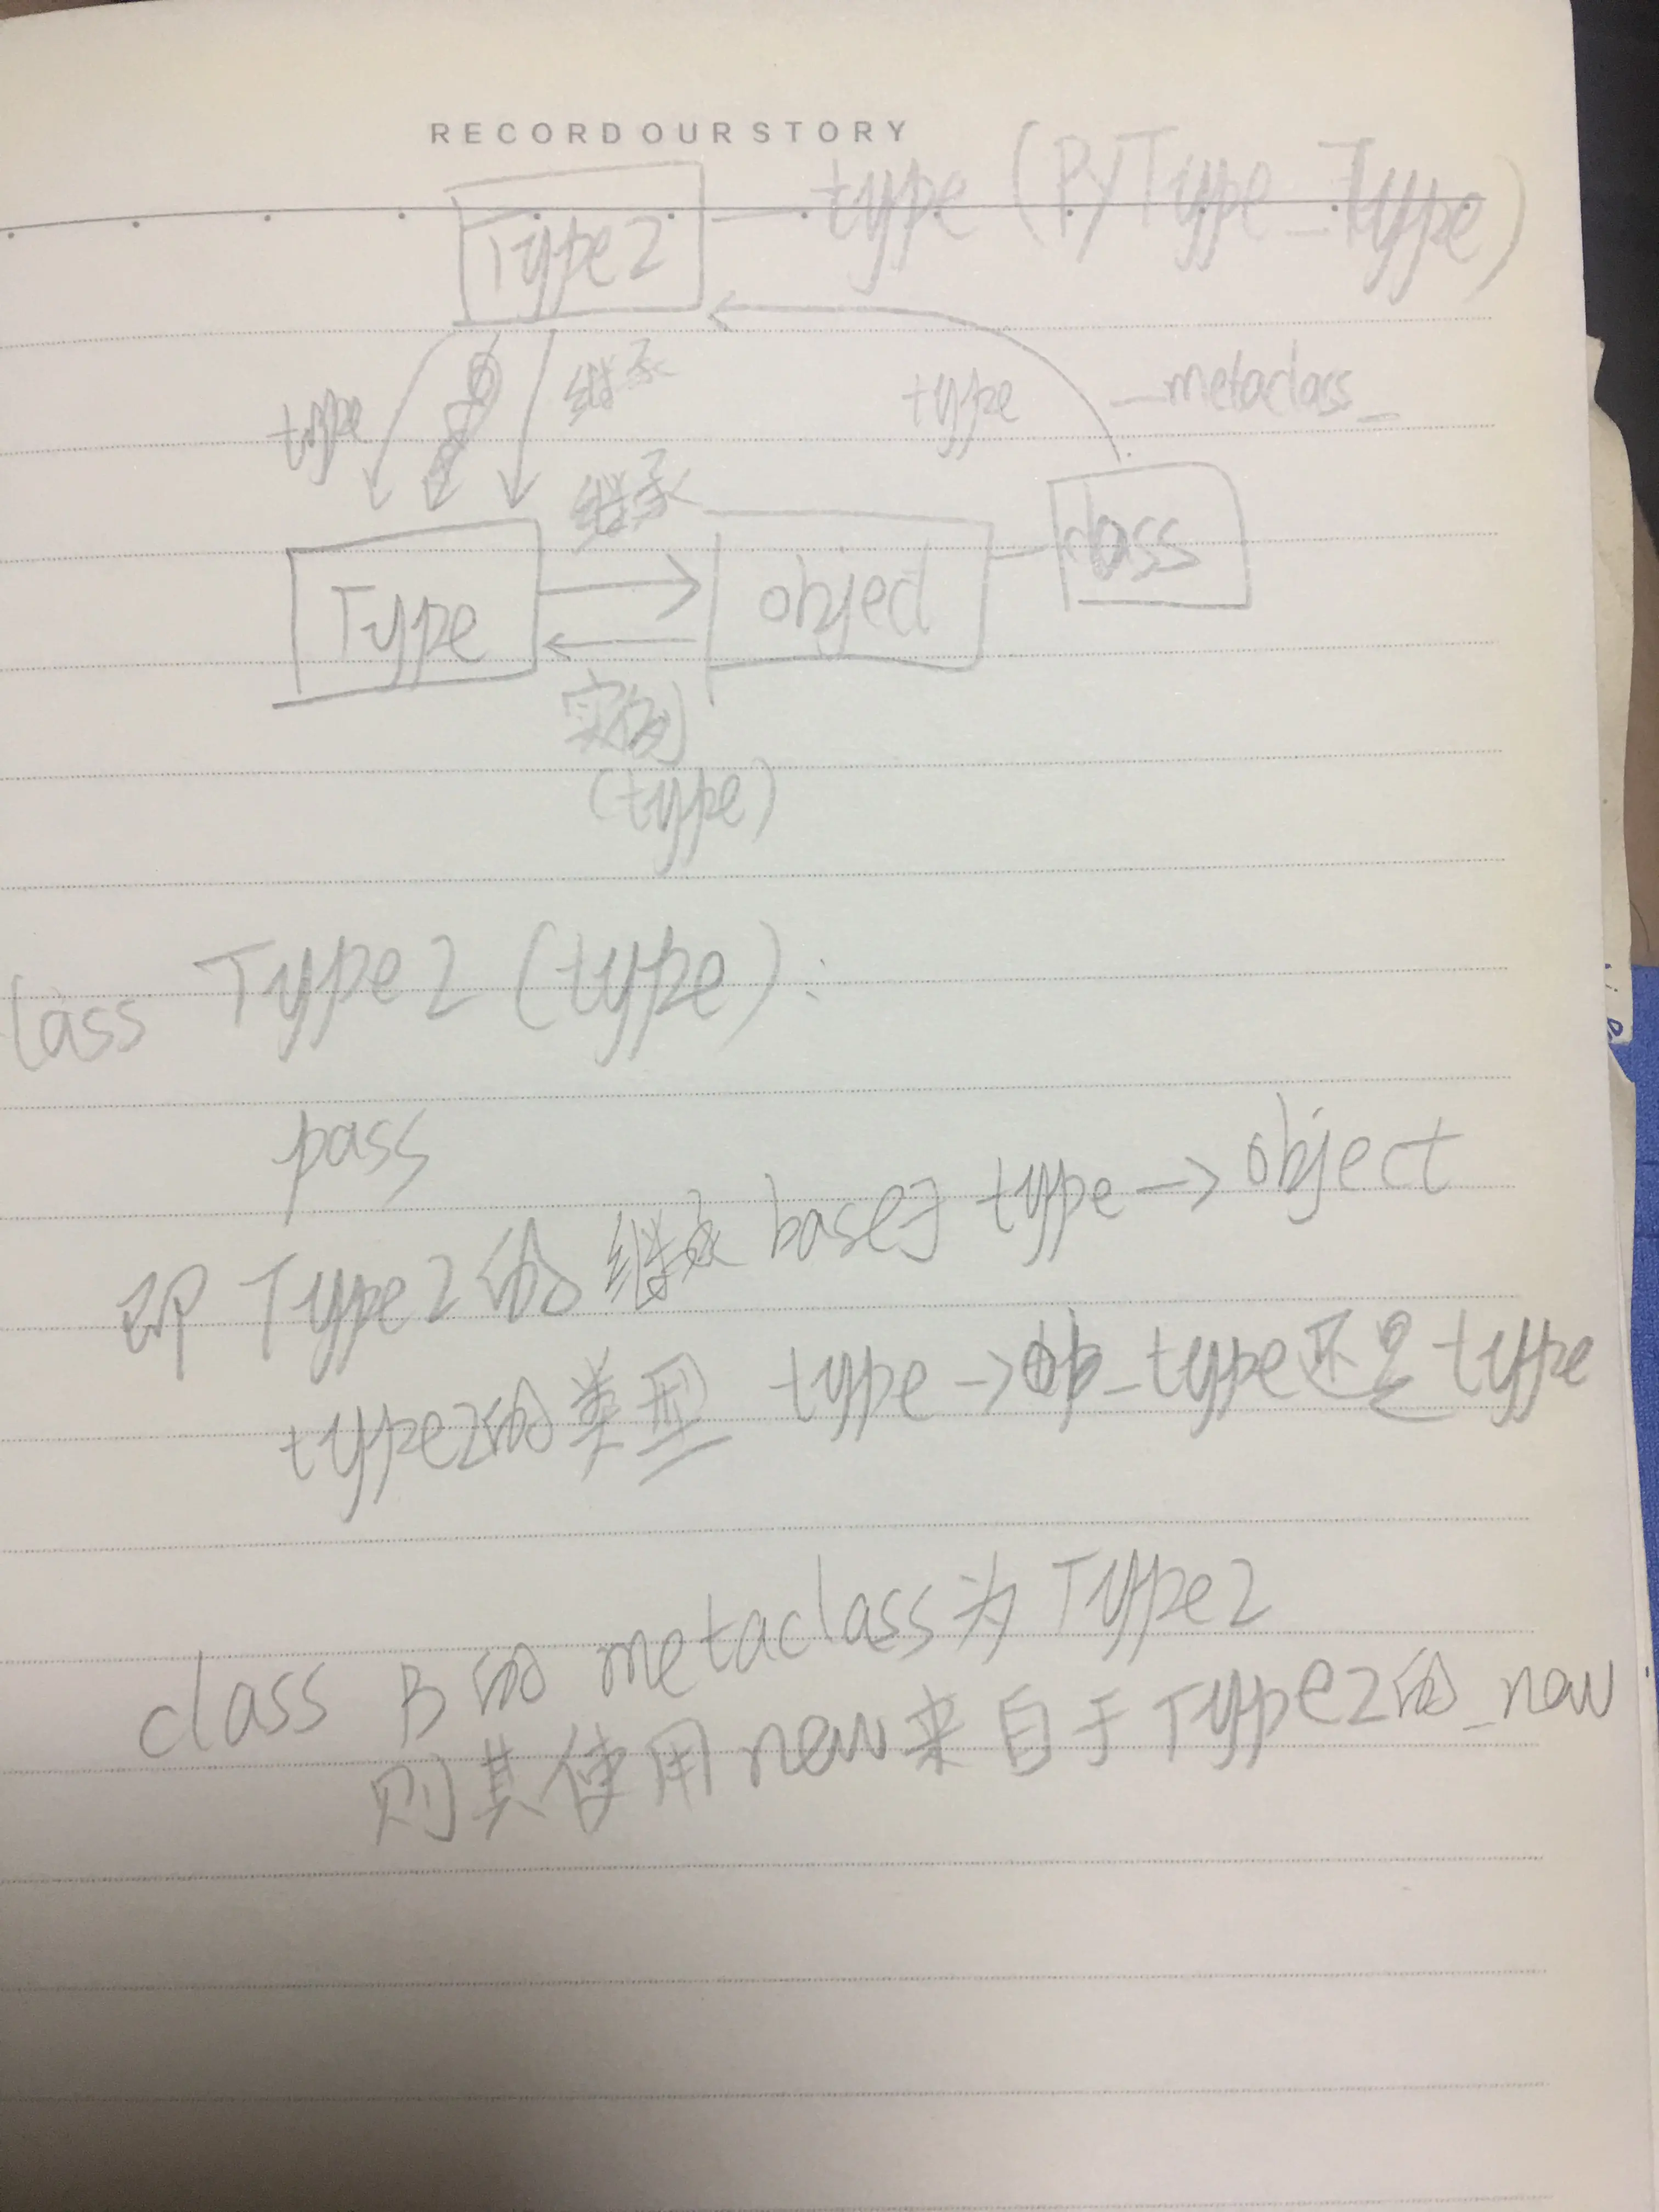 RECORD OUR STORY
Type2 type (PyType_Type)
type 继承 type _metaclass_
继承
Type object class
实例
(type)
lass Type2 (type):
pass
即 Type2的 继承 base于 type → object
type2的类型 type → ob_type还是 type
class B的 metaclass为 Type2
则其使用new来自于Type2的_new